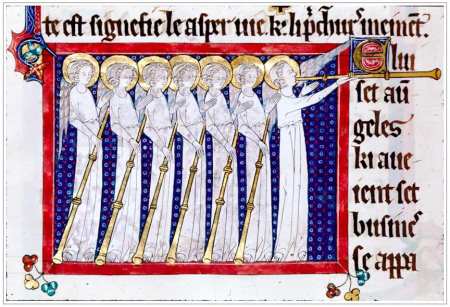 te est signefie le aspre uie. ke li meinent.
E li
set aũ
geles
ki aue
ient set
busines
se appa